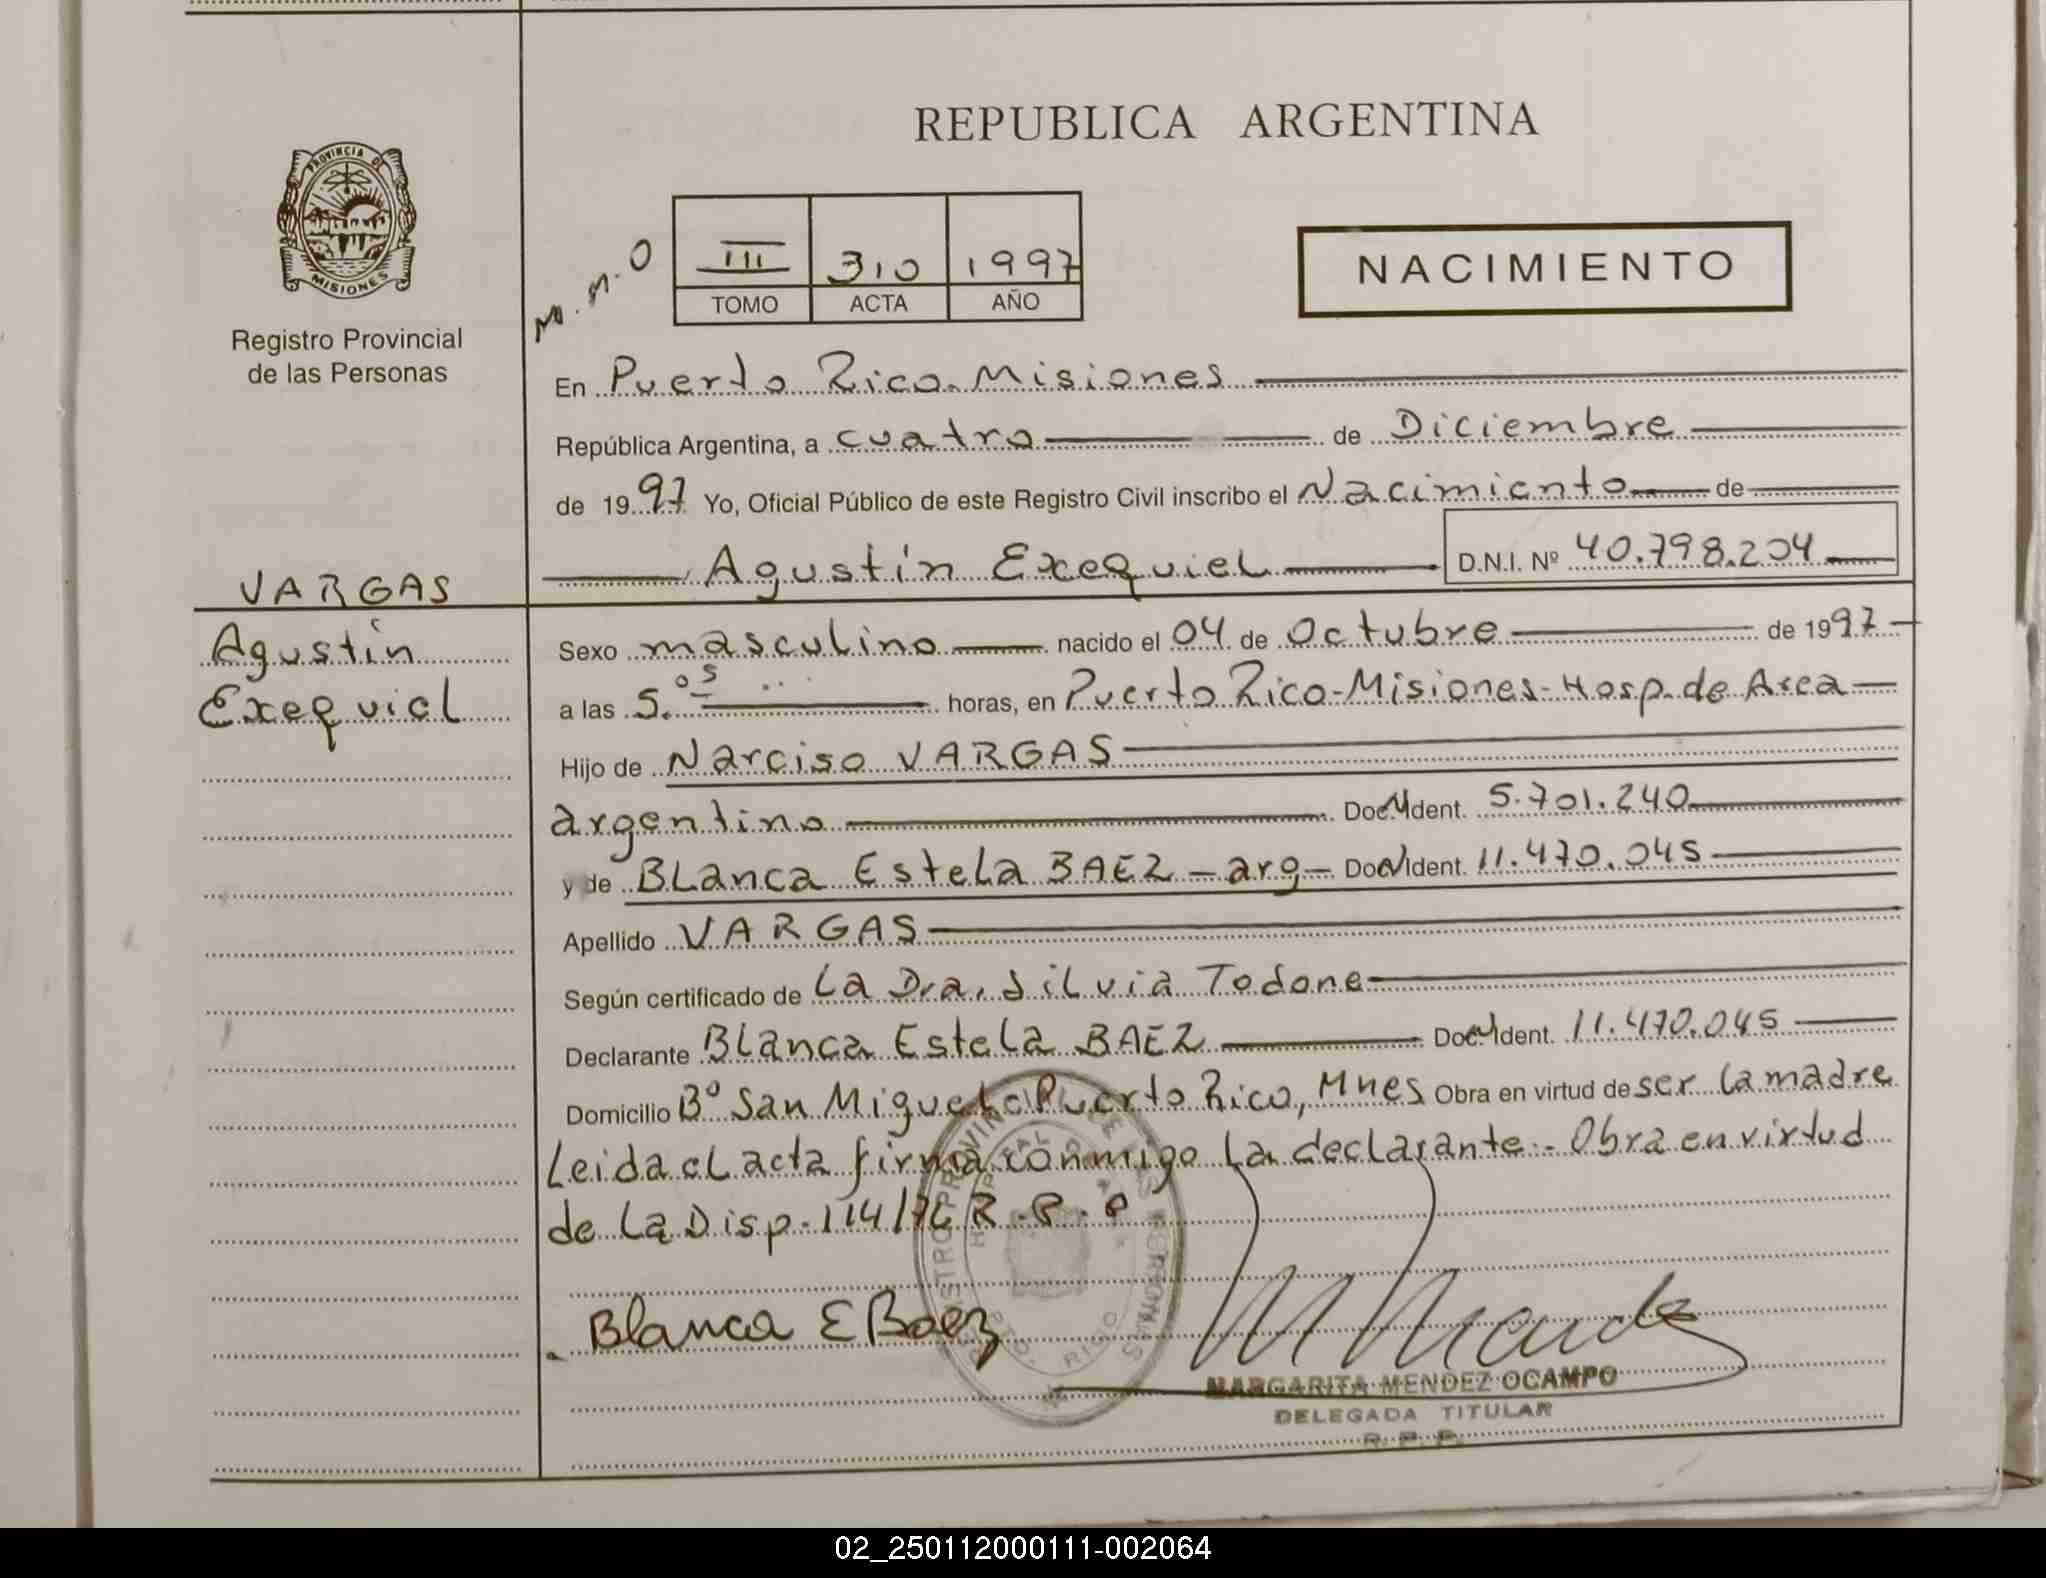 REPUBLICA ARGENTINA
PROVINCIA DE
MISIONES
Registro Provincial
de las Personas
M.N.O
III 310 1997
TOMO ACTA AÑO
NACIMIENTO
En Puerto Rico-Misiones
República Argentina, a cuatro de Diciembre
de 1997 Yo, Oficial Público de este Registro Civil inscribo el Nacimiento de
Agustín Exequiel D.N.I. Nº 40.798.204
VARGAS
Agustín
Exequiel
Sexo masculino nacido el 04 de Octubre de 1997
a las 5.05 horas, en Puerto Rico-Misiones-Hosp. de Area
Hijo de Narciso VARGAS
argentino Doc. Ident. 5.701.240
y de BLanca Estela BAEZ - arg - Doc. Ident. 11.470.045
Apellido VARGAS
Según certificado de La Dra. Silvia Todone
Declarante BLanca Estela BAEZ Doc. Ident. 11.470.045
Domicilio Bº San Miguel Puerto Rico, Mnes Obra en virtud de ser la madre
Leida el acta firma conmigo la declarante.- Obra en virtud
de La Disp. 114/76 R.P.P
Blanca E Baez
MARGARITA MENDEZ OCAMPO
DELEGADA TITULAR
R.P.P.
02_250112000111-002064